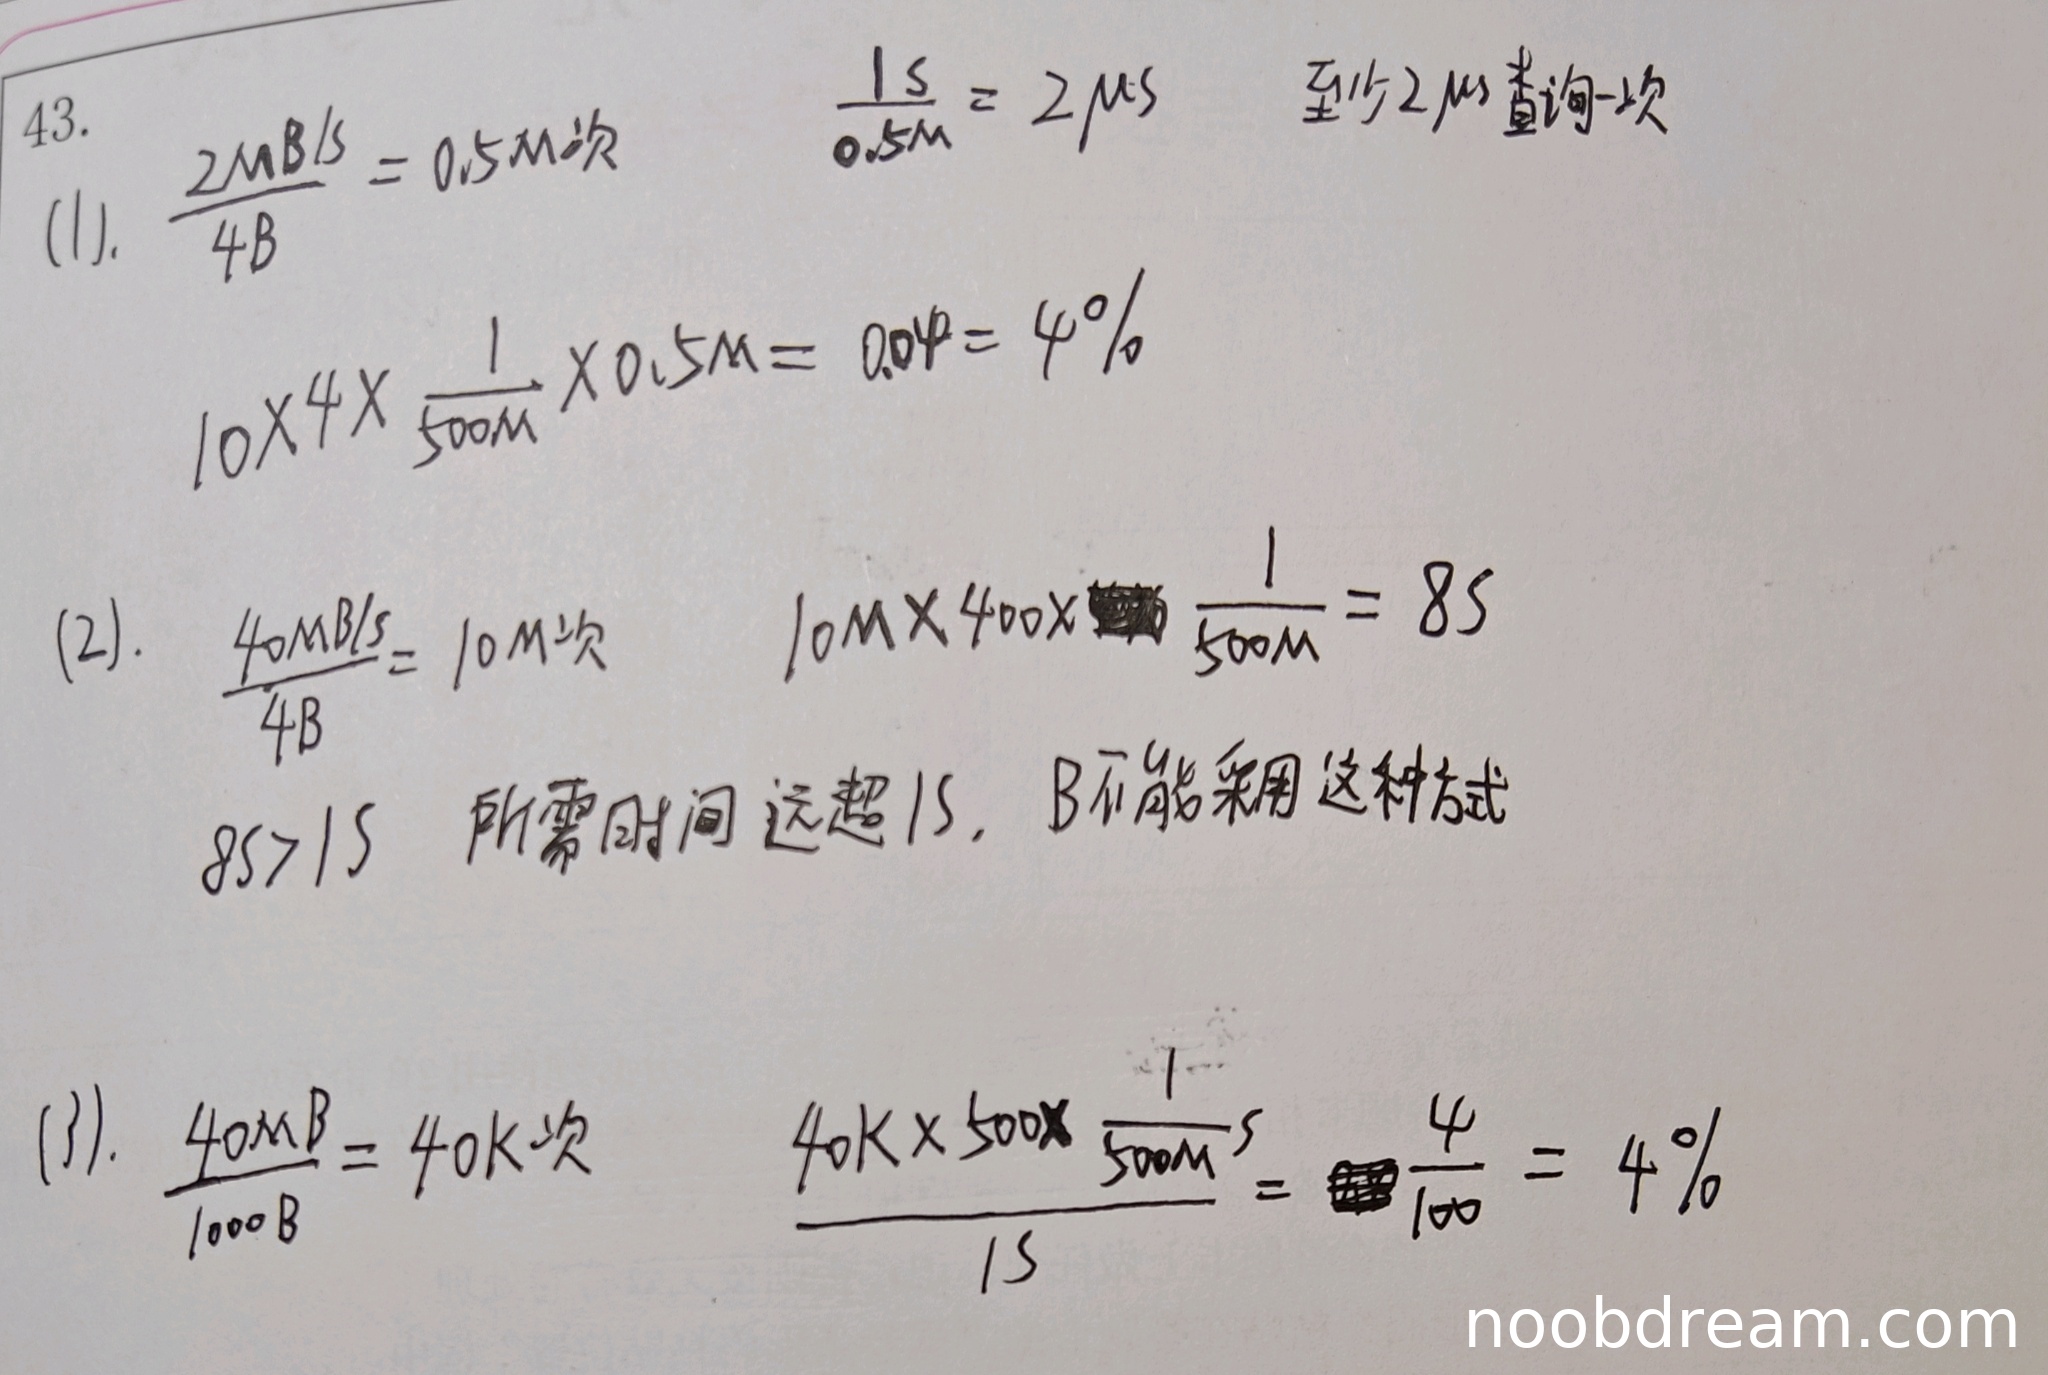 43.
(1). 2MB/s / 4B = 0.5M次 1s / 0.5M = 2μs 至少2μs查询一次
10×4× 1/500M ×0.5M= 0.04= 4%
(2). 40MB/s / 4B = 10M次 10M×400× 1/500M = 8s
8s>1s 所需时间远超1s. B不能采用这种方式
(3). 40MB / 1000B = 40K次 40K×500× 1/500M s / 1s = 4/100 = 4%
noobdream.com